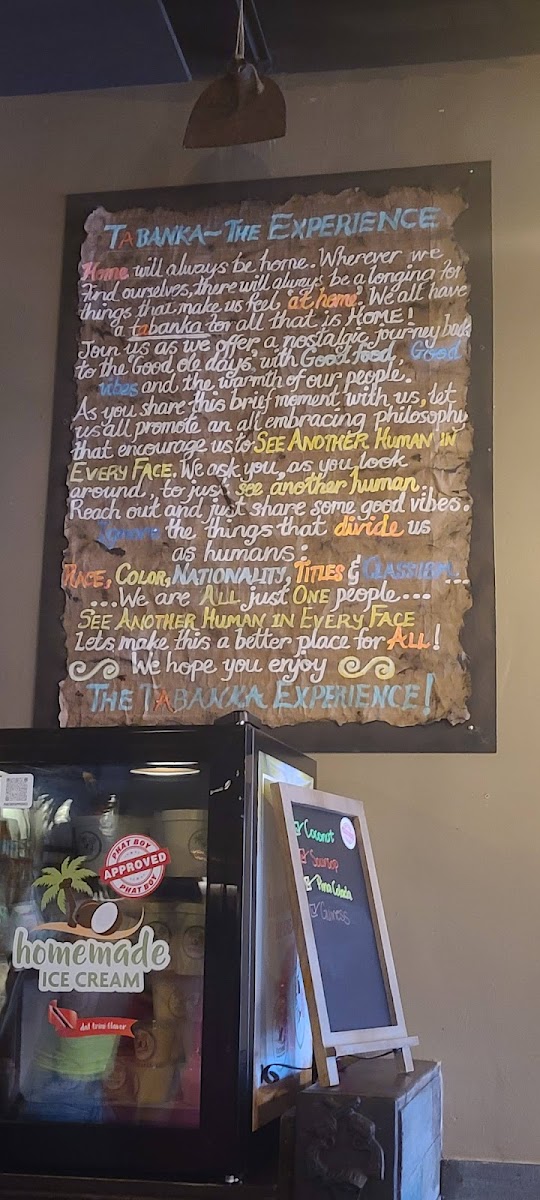 TABANKA~THE EXPERIENCE
Home will always be home. Wherever we
find ourselves, there will always be a longing for
things that make us feel at home. We all have
a tabanka for all that is HOME!
Join us as we offer a nostalgic journey back
to the 'Good ole days', with Good food, Good
vibes and the warmth of our people.
As you share this brief moment with us, let
us all promote an all embracing philosophy
that encourage us to SEE ANOTHER HUMAN IN
EVERY FACE. We ask you, as you look
around, to just see another human.
Reach out and just share some good vibes.
Ignore the things that divide us
as humans:
RACE, COLOR, NATIONALITY, TITLES & CLASSISM...
...We are ALL just ONE people...
SEE ANOTHER HUMAN IN EVERY FACE
Lets make this a better place for ALL!
We hope you enjoy
THE TABANKA EXPERIENCE!
PHAT BOY
APPROVED
PHAT BOY
homemade
ICE CREAM
dat trini flavor
Coconut
Soursop
Pina Colada
Guiness